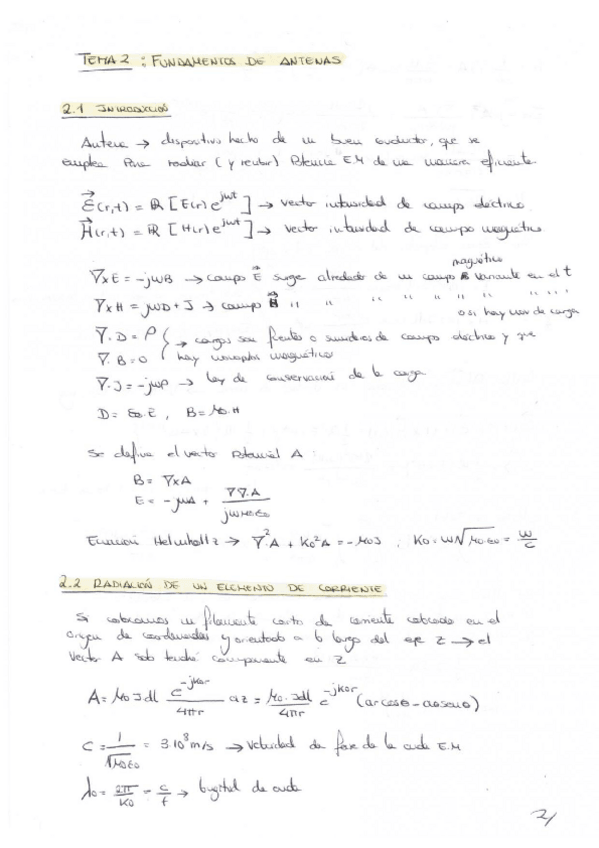 TEMA 2 : FUNDAMENTOS DE ANTENAS
2.1 INTRODUCCIÓN
Antena → dispositivo hecho de un buen conductor, que se
emplea para radiar (y recibir) Potencia E.M de una manera eficiente.
Ɛ(r,t) = ℝ [E(r) e^jωt] → vector intensidad de campo eléctrico
H(r,t) = ℝ [H(r) e^jωt] → vector intensidad de campo magnético
magnético
∇xE = -jωB → campo E surge alrededor de un campo variante en el t
∇xH = jωD + J → campo H " " " " " " " " "
o si hay mov de carga
∇.D = ρ } → cargas son fuentes o sumideros de campo eléctrico y que
∇.B = 0 hay monopolos magnéticos
∇.J = -jωρ → ley de conservación de la carga
D = ε0.E , B = μ0.H
Se define el vector Potencial A
B = ∇xA
E = -jωA + ∇∇.A / jωμ0ε0
Ecuación Helmholtz → ∇²A + K0²A = -μ0J , K0 = ω√μ0.ε0 = ω/c
2.2 RADIACIÓN DE UN ELEMENTO DE CORRIENTE
Si colocamos un filamento corto de corriente colocado en el
origen de coordenadas y orientado a lo largo del eje z → el
vector A solo tendrá componente en z
A = μ0 J dl e^-jk0r / 4πr az = μ0.Jdl / 4πr e^-jk0r (ar cosθ - aθ senθ)
C = 1/√μ0ε0 = 3.10⁸ m/s → velocidad de fase de la onda E.M
λ0 = 2π/K0 = c/f → longitud de onda
2/